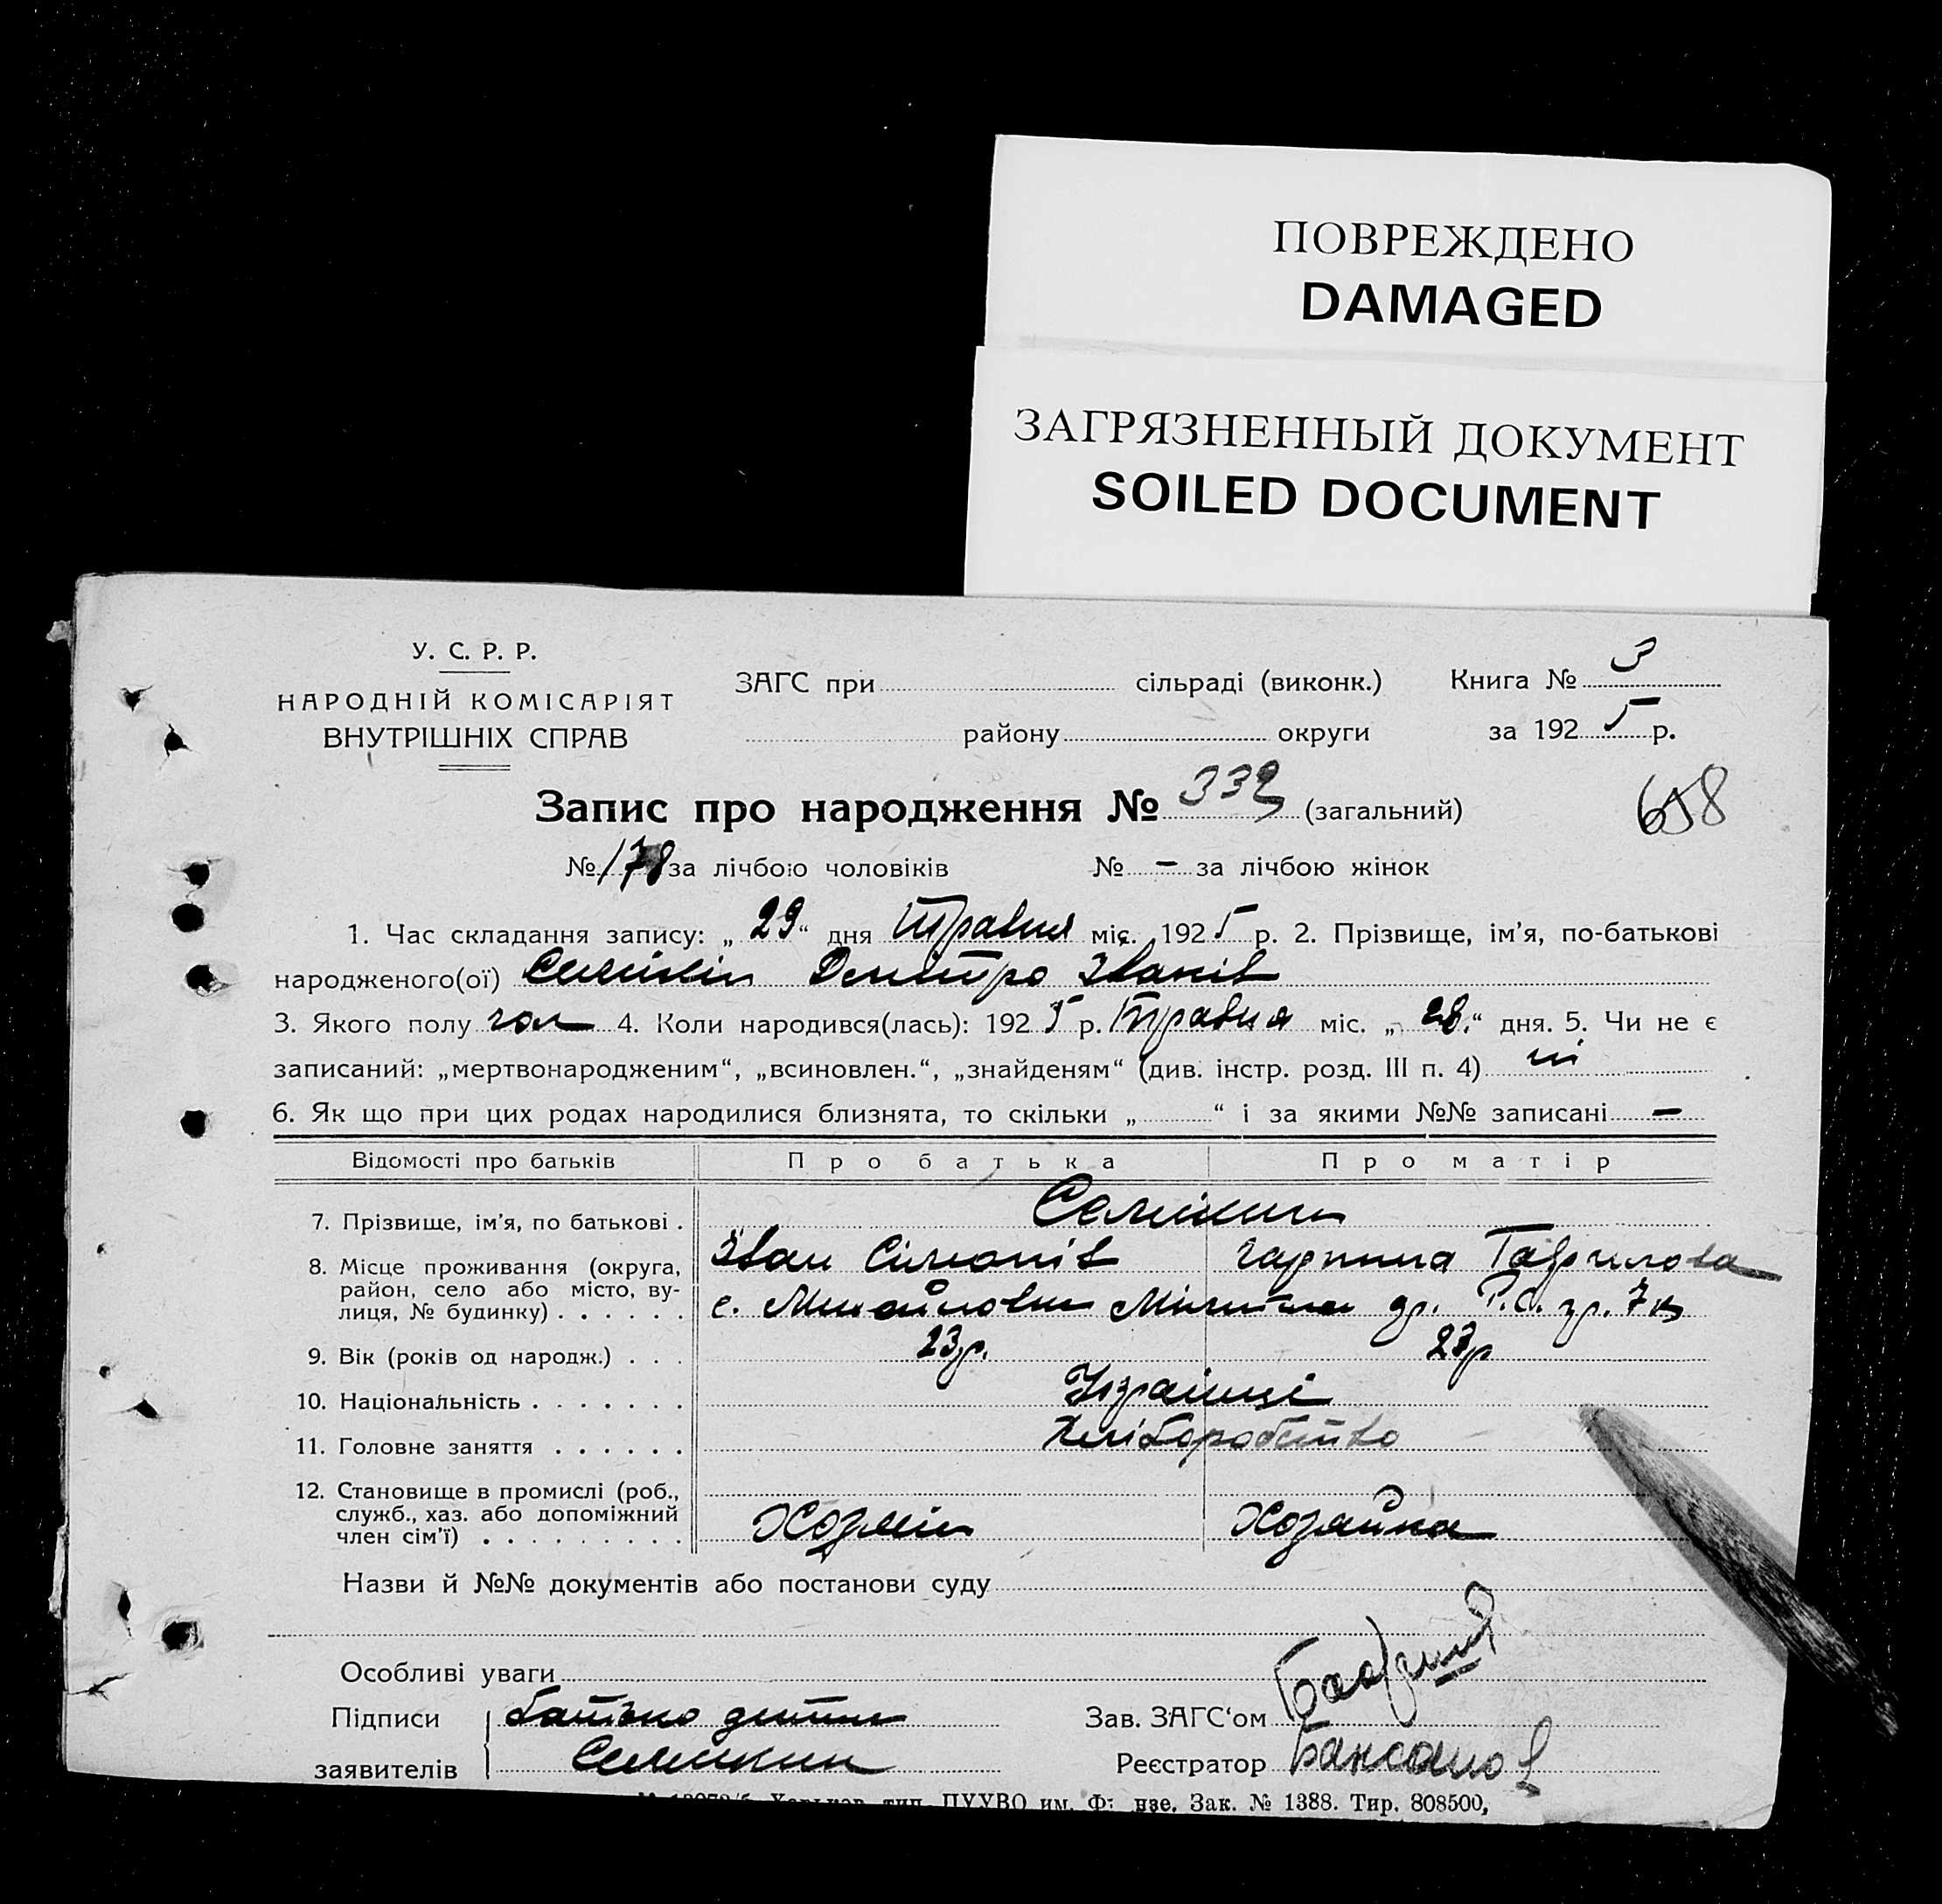 ПОВРЕЖДЕНО
DAMAGED
ЗАГРЯЗНЕННЫЙ ДОКУМЕНТ
SOILED DOCUMENT
У. С. Р. Р.
НАРОДНІЙ КОМІСАРІЯТ
ВНУТРІШНІХ СПРАВ
ЗАГС при сільраді (виконк.) Книга № 3
району округи за 1925 р.
Запис про народження № 332 (загальний) 658
№ 178 за лічбою чоловіків № — за лічбою жінок
1. Час складання запису: „29“ дня Травня міс. 1925 р. 2. Прізвище, ім'я, по-батькові
народженого(ої) Дмитро Іванів
3. Якого полу чол 4. Коли народився(лась): 1925 р. Травня міс. „28.“ дня. 5. Чи не є
записаний: „мертвонародженим“, „всиновлен.“, „знайденям“ (див. інстр. розд. III п. 4) ні
6. Як що при цих родах народилися близнята, то скільки „ “ і за якими №№ записані —
Відомості про батьків Про батька Про матір
7. Прізвище, ім'я, по батькові .
Іван Гарпина Гаврилова
8. Місце проживання (округа, район, село або місто, вулиця, № будинку) . . . . . . с.
9. Вік (років од народж.) . . . 23р. 23р
10. Національність . . . . . . . Українці
11. Головне заняття . . . . . . Хліборобство
12. Становище в промислі (роб., служб., хаз. або допоміжний член сім'ї) . . . . . . . . . Хозяїн Хозяйка
Назви й №№ документів або постанови суду
Особливі уваги
Підписи батько дитини Зав. ЗАГС'ом
заявителів Реєстратор
Зак. № 1388. Тир. 808500,